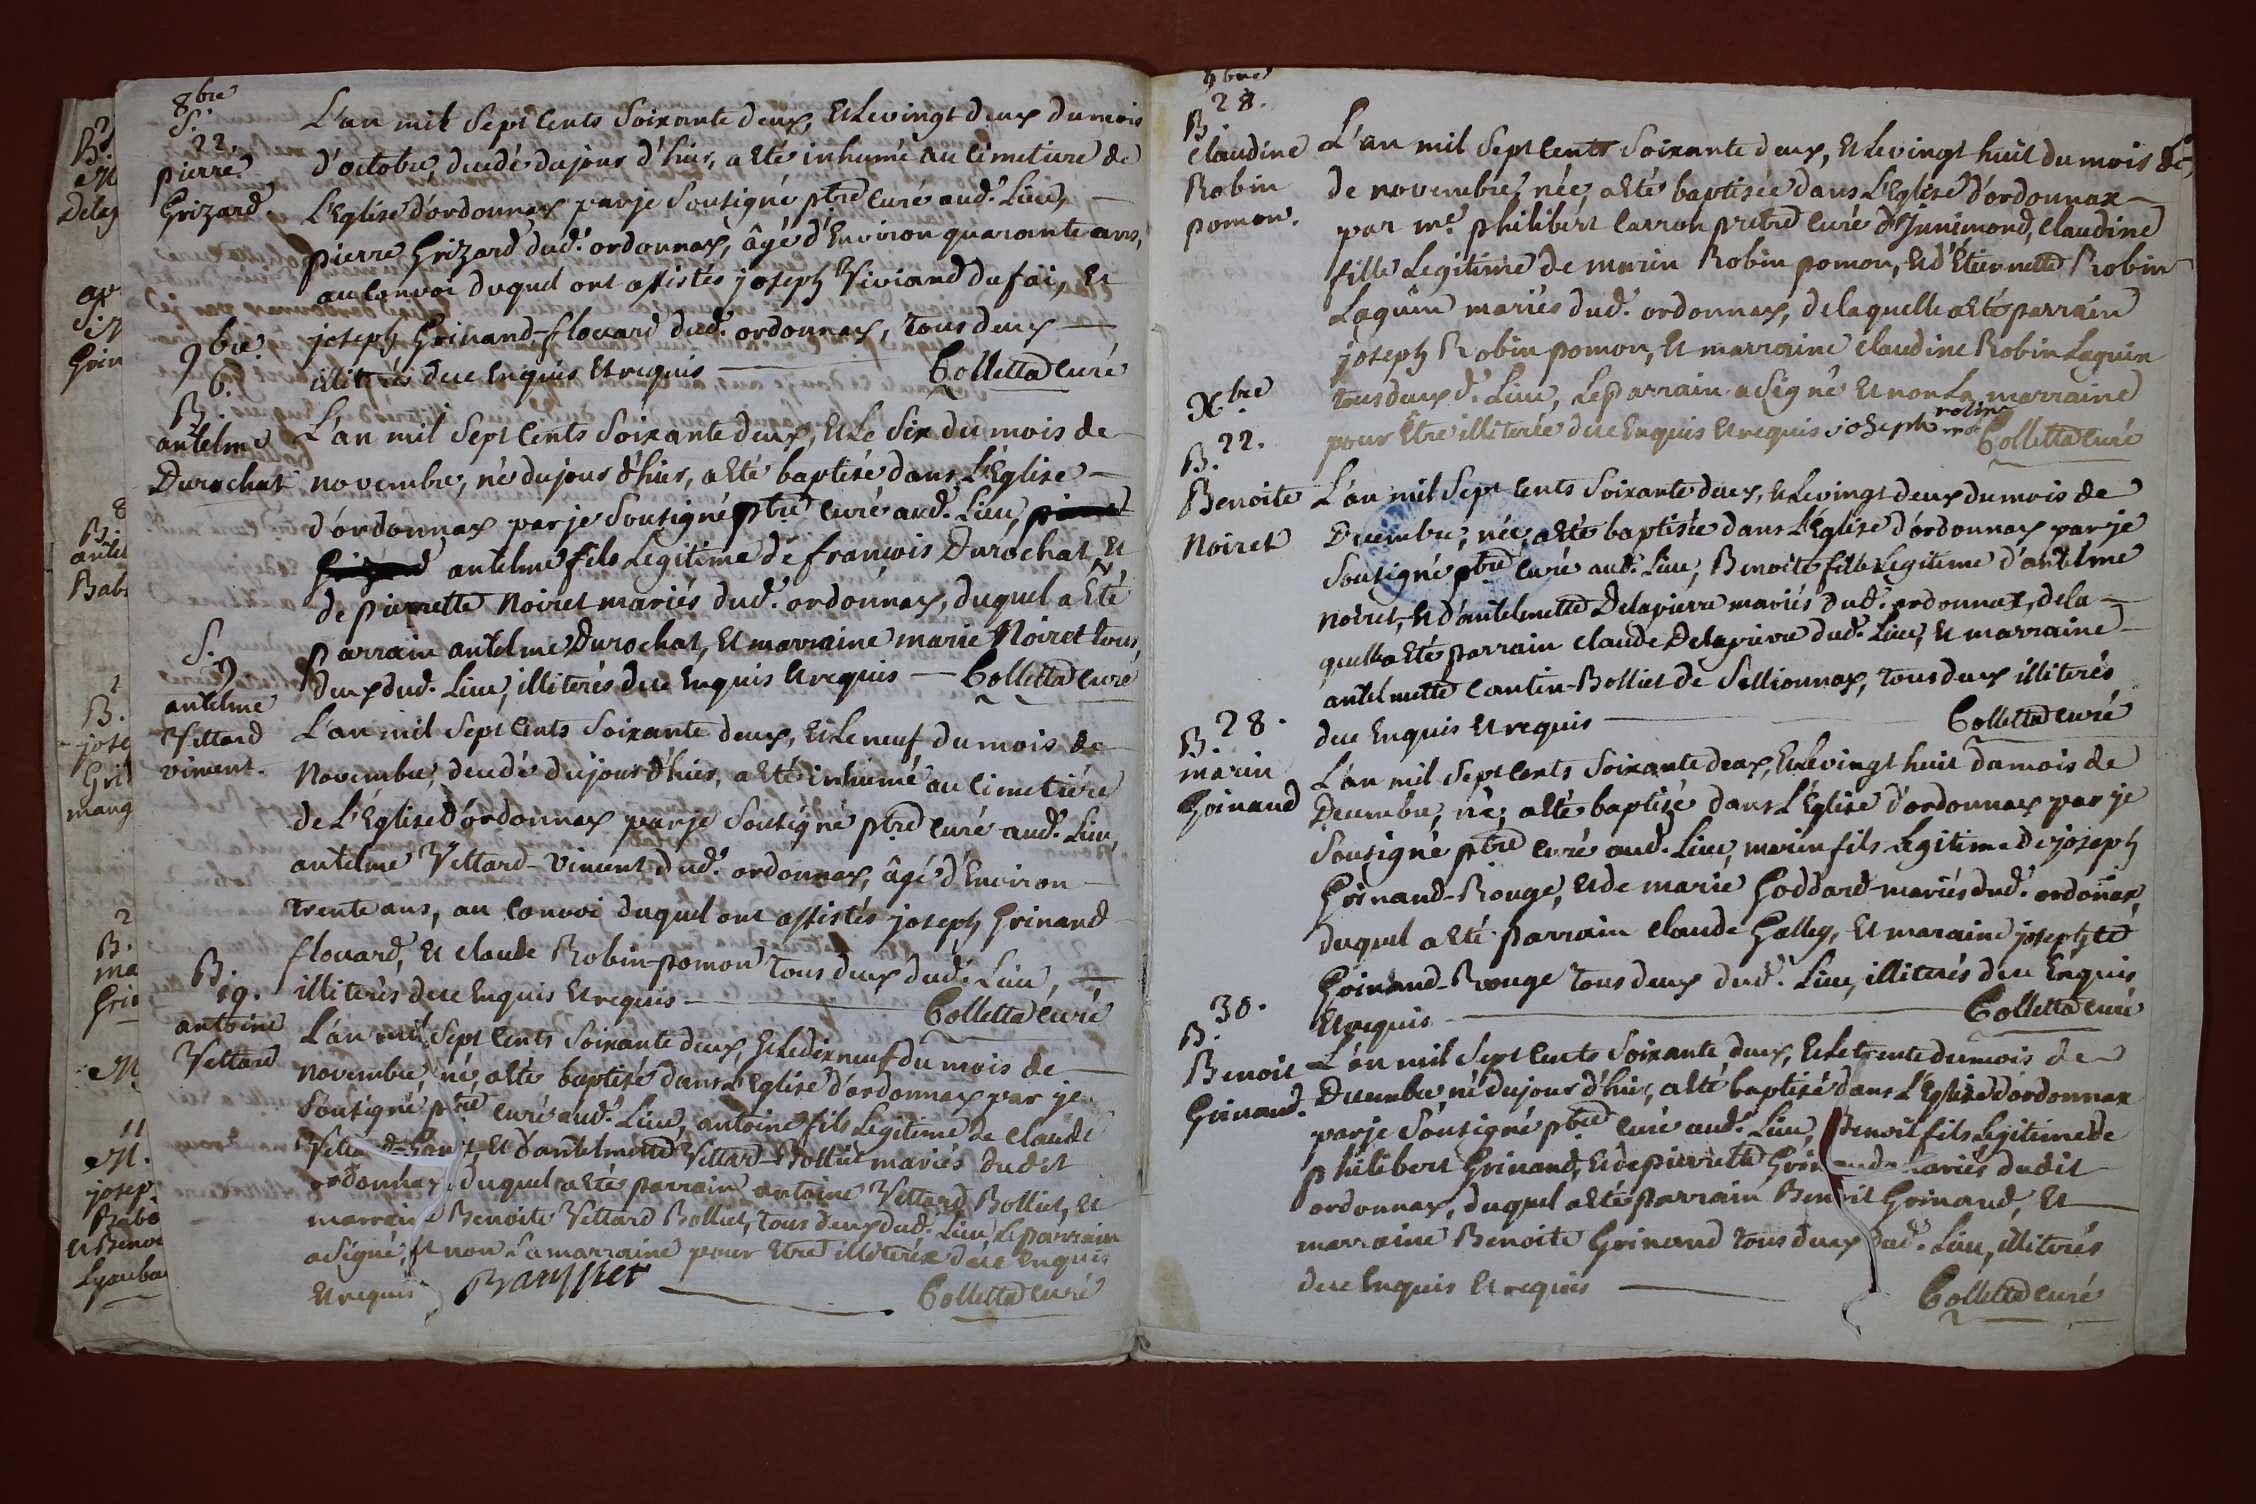 8bre
S.
22.
pierre
Grizard
L'an mil Sept Cents Soixante deux, Et Le vingt deux du mois
d'octobre, decedé du jour d'hier, a Eté inhumé au Cimetiere de
L'Eglise d'ordonnax par je Soussigné ptre Curé aud. Lieu,
pierre Grizard dud. ordonnax, âgé d'Environ quarante ans,
au Convoi duquel ont assistés joseph Viviand du fai, Et
joseph Grinand-flouard dud. ordonnax, tous deux
illiterés de ce Enquis Et requis Colletta Curé
9bre
6.
B.
antelme
Durochat
L'an mil Sept Cents Soixante deux, Et Le Six du mois de
novembre, né du jour d'hier, a Eté baptisé dans L'Eglise
d'ordonnax par je Soussigné ptre Curé aud. Lieu,
antelme fils Legitime de françois Durochat, Et
de pierrette Noiret mariés dud. ordonnax, duquel a Eté
parrain antelme Durochat, Et marraine marie Noiret tous
deux dud. Lieu, illiterés de ce Enquis Et requis Colletta Curé
S.
9
antelme
Vettard
vincent.
L'an mil Sept Cents Soixante deux, Et Le neuf du mois de
Novembre, decedé du jour d'hier, a Eté inhumé au Cimetiére
de L'Eglise d'ordonnax par je Soussigné ptre Curé aud. Lieu,
antelme Vettard-Vincent dud. ordonnax, âgé d'Environ
trente ans, au Convoi duquel ont assistés joseph Grinand
flouard, Et Claude Robin-pomon tous deux dud. Lieu,
illiterés de ce Enquis Et requis Colletta Curé
B.
19.
antoine
Vettard
L'an mil Sept Cents Soixante deux, Et Le dix neuf du mois de
novembre, né, a Eté baptisé dans L'Eglise d'ordonnax par je
Soussigné ptre Curé aud. Lieu, antoine fils Legitime de Claude
Et d'antelmette Vettard-Bolliet mariés dudit
ordonnax, duquel a Eté parrain antoine Vettard Bolliet, Et
marraine Benoite Vettard Bolliet, tous deux dud. Lieu, Le parrain
a Signé, Et non La marraine pour Etre illiterée de ce Enquis
Et requis Colletta Curé
9bre
28.
B.
Claudine
Robin
pomon.
L'an mil Sept Cents Soixante deux, Et Le vingt huit du mois de
de novembre, née, a Eté baptisée dans L'Eglise d'ordonnax
par mre philibert Carron prêtre Curé d'Innimond, Claudine
fille Legitime de marin Robin pomon, Et d'Étiennette Robin
Laguin mariés dud. ordonnax, de laquelle a Eté parrain
joseph Robin pomon, Et marraine Claudine Robin Laguin
tous deux d. Lieu, Le parrain a Signé Et non La marraine
pour Être illiterée de ce Enquis Et requis joseph robin Colletta Curé
Xbre
B. 22.
Benoite
Noiret
L'an mil Sept Cents Soixante deux, Et Le vingt deux du mois de
Decembre, née, a Eté baptisée dans L'Eglise d'ordonnax par je
Soussigné ptre Curé aud. Lieu, Benoite fille Legitime d'antelme
Noiret, Et d'antelmette Delapierre mariés dud. ordonnax, de la
quelle a Eté parrain Claude Delapierre dud. Lieu, Et marraine
antelmette Cantin-Bolliet de Sellionnax, tous deux illiterés
de ce Enquis Et requis Colletta Curé
B. 28.
marin
Grinand
L'an mil Sept Cents Soixante deux, Et Le vingt huit du mois de
Decembre, né, a Eté baptisé dans L'Eglise d'ordonnax par je
Soussigné ptre Curé aud. Lieu, marin fils Legitime de joseph
Grinand-Rouge, Et de marie Goddard mariés dud. ordonnax,
duquel a Eté parrain Claude Galley, Et maraine josephte
Grinand-Rouge tous deux dud. Lieu, illiterés de ce Enquis
Et requis Colletta Curé
30.
B.
Benoit
Grinand.
L'an mil Sept Cents Soixante deux, Et Le trente du mois de
Decembre né du jour d'hier, a Eté baptisé dans L'Eglise d'ordonnax
par je Soussigné ptre Curé aud. Lieu, Benoit fils Legitime de
philibert Grinand, Et de pierrette Grinand mariés dudit
ordonnax, duquel a Eté parrain Benoit Grinand, Et
marraine Benoite Grinand tous deux dud. Lieu, illiterés
de ce Enquis Et requis Colletta Curé